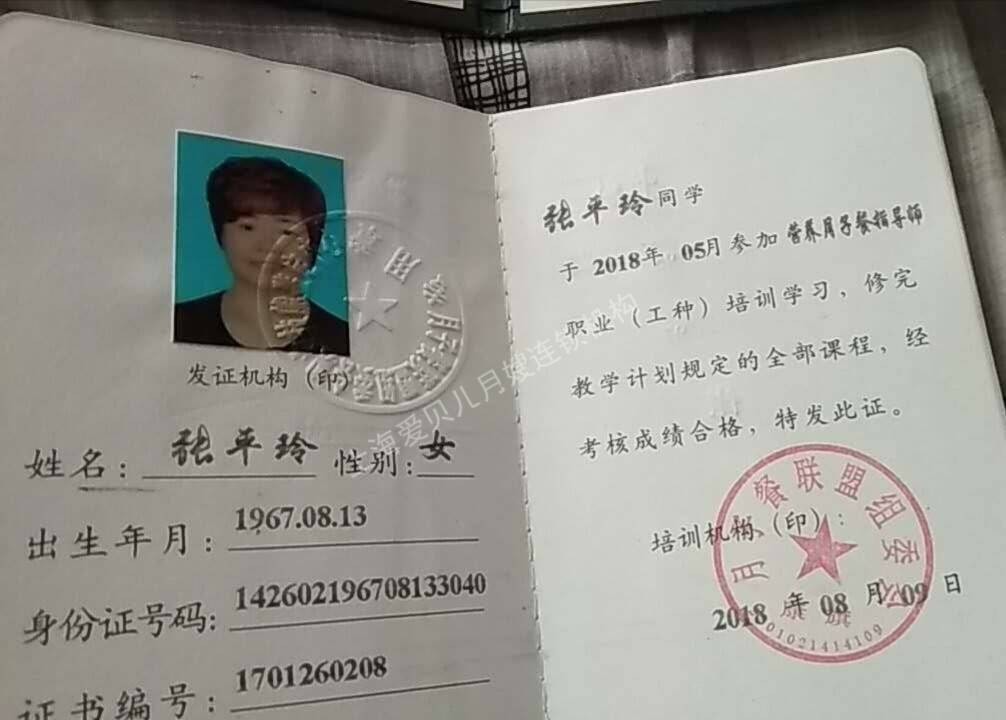 发证机构（印）
姓名：张平玲 性别:女
出生年月：1967.08.13
身份证号码:142602196708133040
证书编号：1701260208
张平玲同学
于 2018年 05月参加营养月子餐指导师
职业（工种）培训学习，修完
教学计划规定的全部课程，经
考核成绩合格，特发此证。
培训机构（印）：
2018 年 08 月 09 日
月 餐联盟组委会
01021414109
海爱贝儿月嫂连锁机构